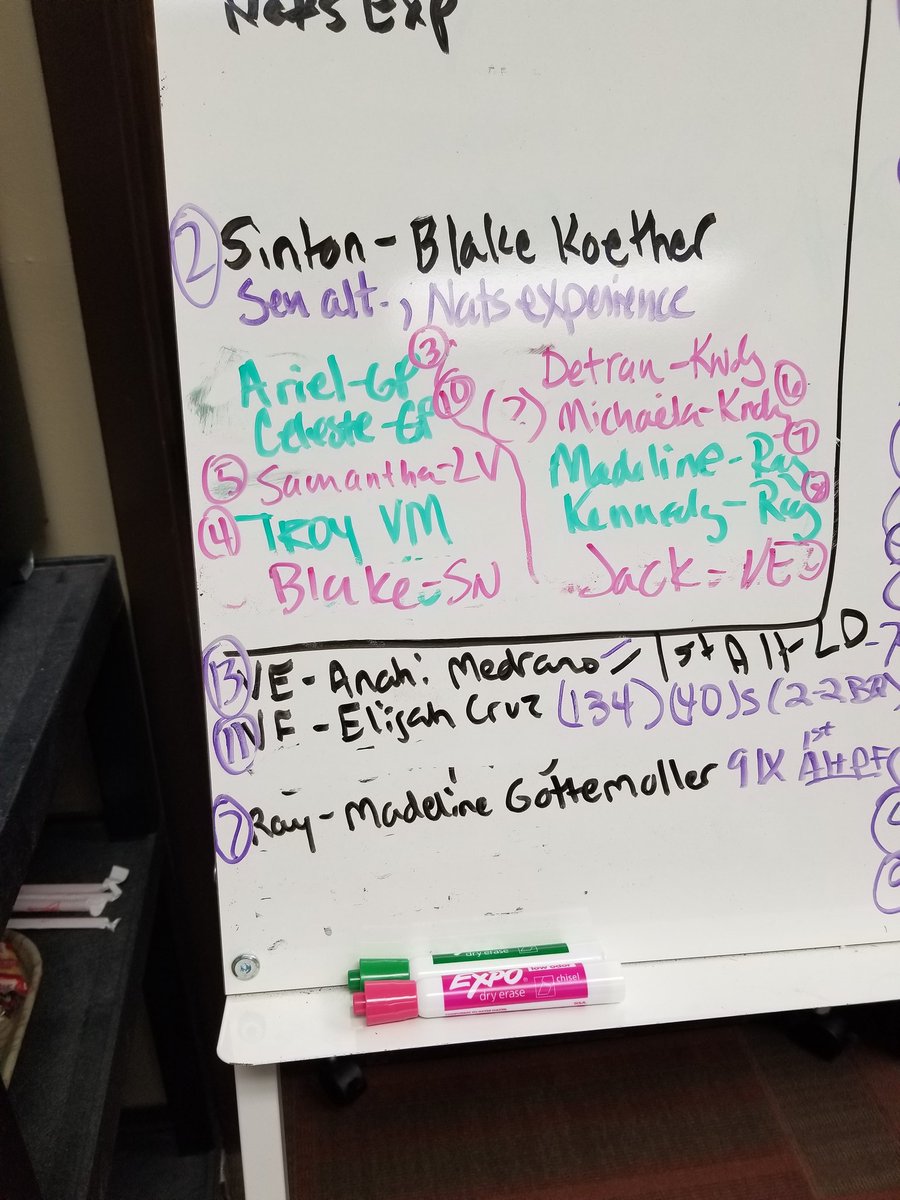 Nats Exp
② Sinton - Blake Koether
Sen alt. , Nats experience
Ariel-GP ③
Celeste-GP ⑩
⑤ Samantha-LV
④ Troy VM
Blake-SN
Detran-Kndy ⑥
(?) Michaela-Kndy ⑦
Madeline-Ray
Kennedy-Ray ⑧
Jack-VE
⑬ VE - Anahi Medrano 1st Alt-LD
⑪ VE - Elijah Cruz (134) (40)s (2-2
Ray - Madeline Gottemoller 91X 1st Alt PF
dry erase
EXPO low odor chisel
dry erase